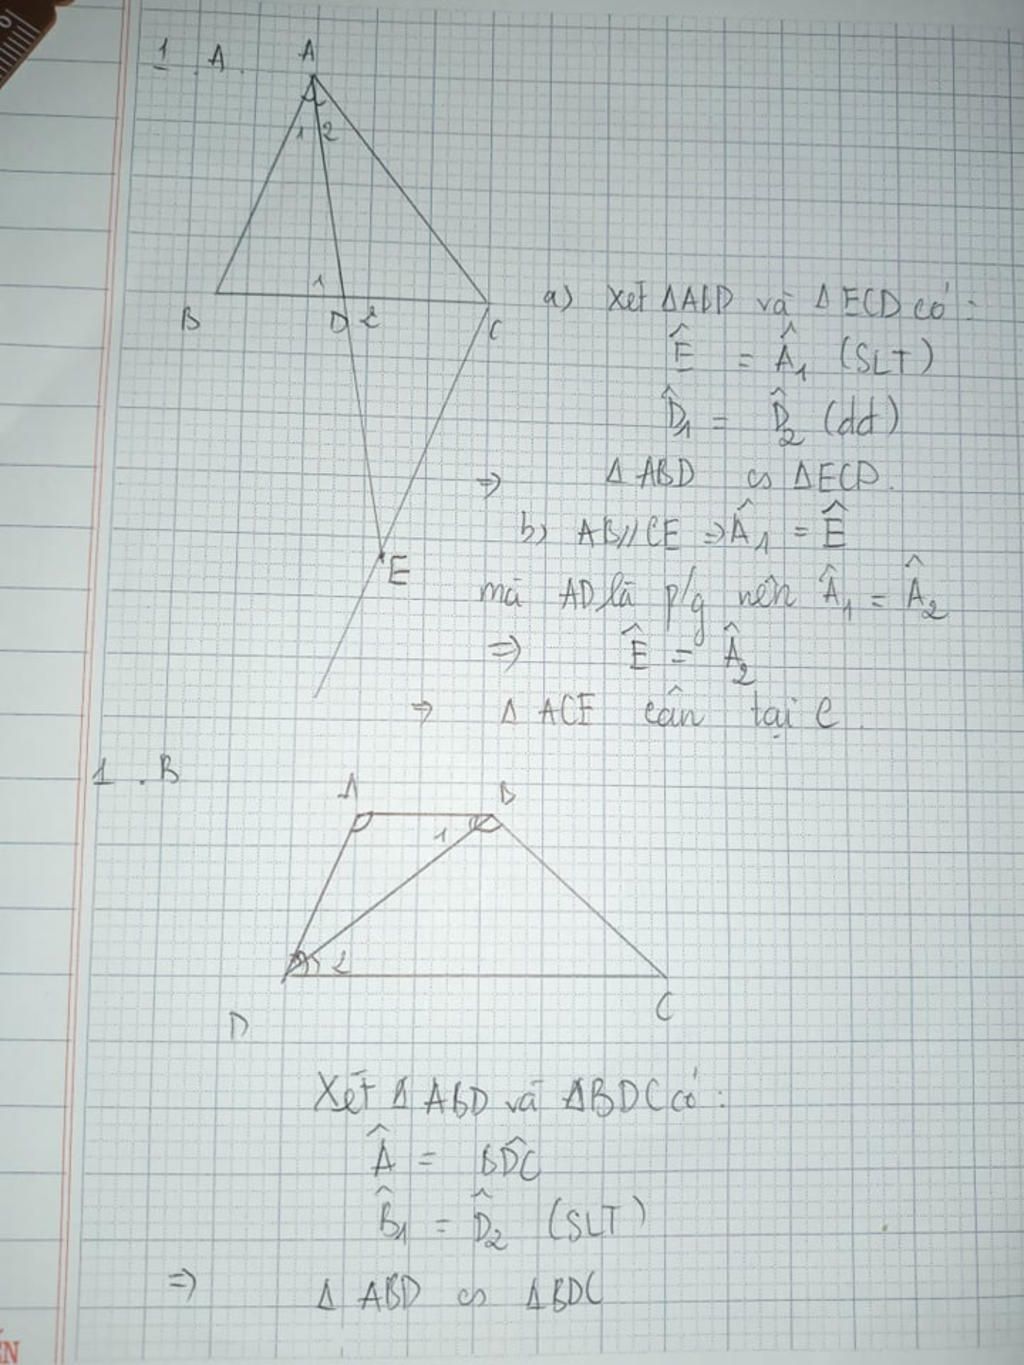 1. A.
A
1 2
1
B D 2 C
a) Xét ΔABD và ΔECD có:
Ê = Â₁ (SLT)
D̂₁ = D̂₂ (dd)
⇒ ΔABD ∽ ΔECD.
b) AB//CE ⇒ Â₁ = Ê
E
mà AD là p/g nên Â₁ = Â₂
⇒ Ê = Â₂
⇒ Δ ACE cân tại C
1. B
A B
1
2
D C
Xét Δ ABD và ΔBDC có:
Â = BD̂C
B̂₁ = D̂₂ (SLT)
⇒ Δ ABD ∽ ΔBDC